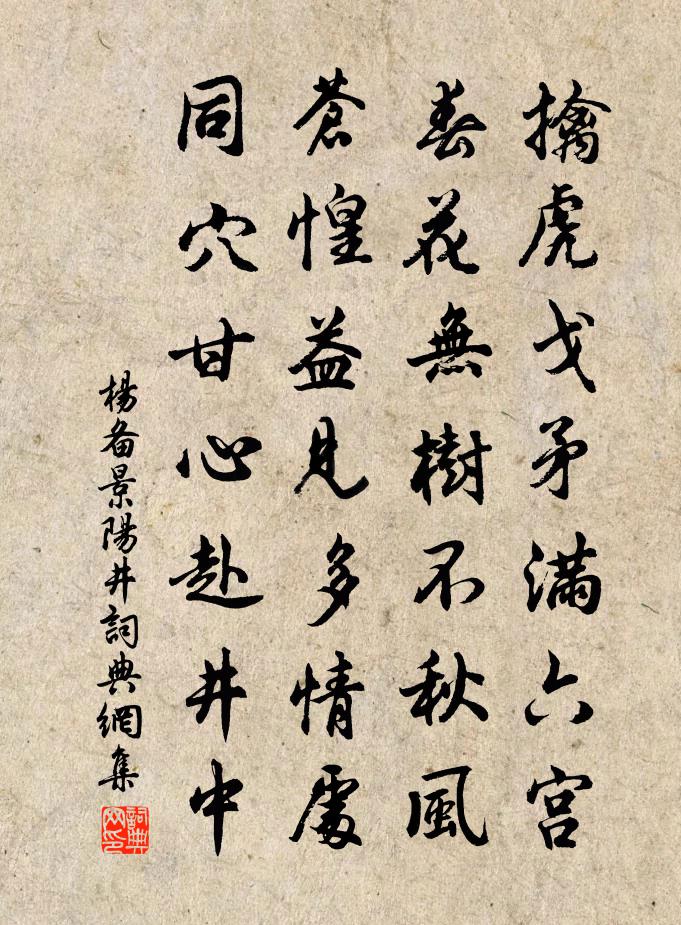 擒虎戈矛滿六宮
春花無樹不秋風
蒼惶益見多情處
同穴甘心赴井中
楊备景陽井詞典網集
詞典网印